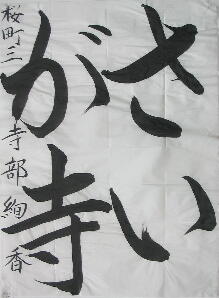 さい
が寺
桜町三 寺部絢香